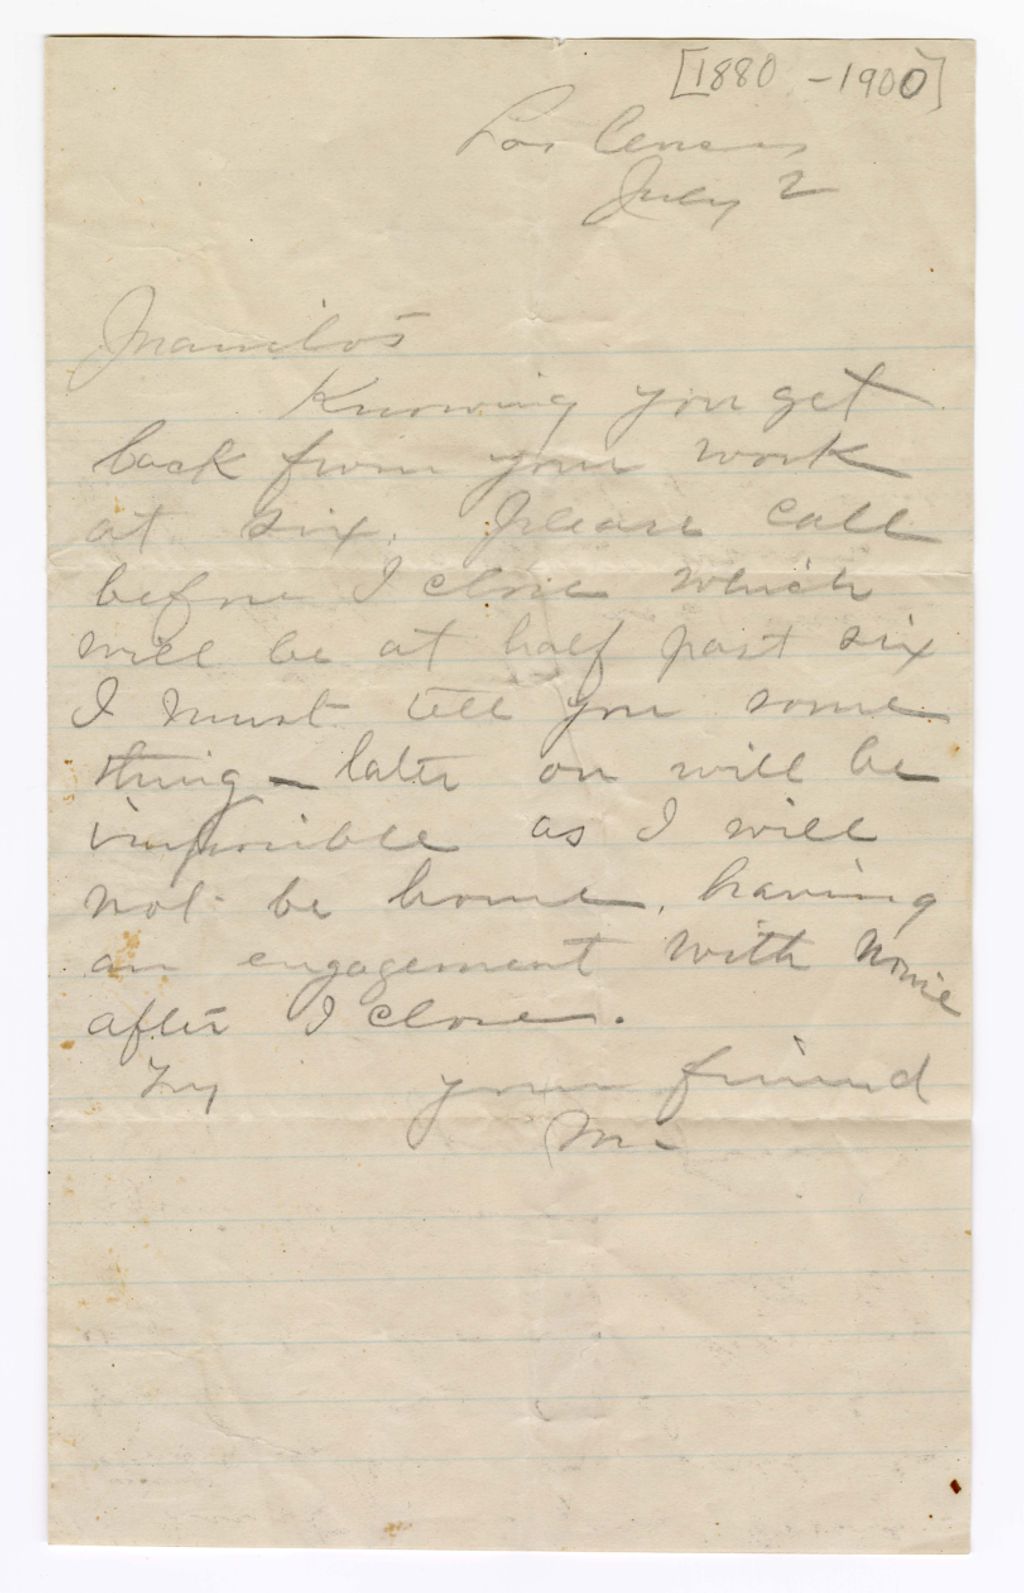 [1880 - 1900]
Las Cruces
July 2
Knowing you get
back from your work
at six, please call
before I close which
will be at half past six
I must tell you some
thing - later on will be
impossible as I will
not be home, having
an engagement with
after I close.
your friend
M-